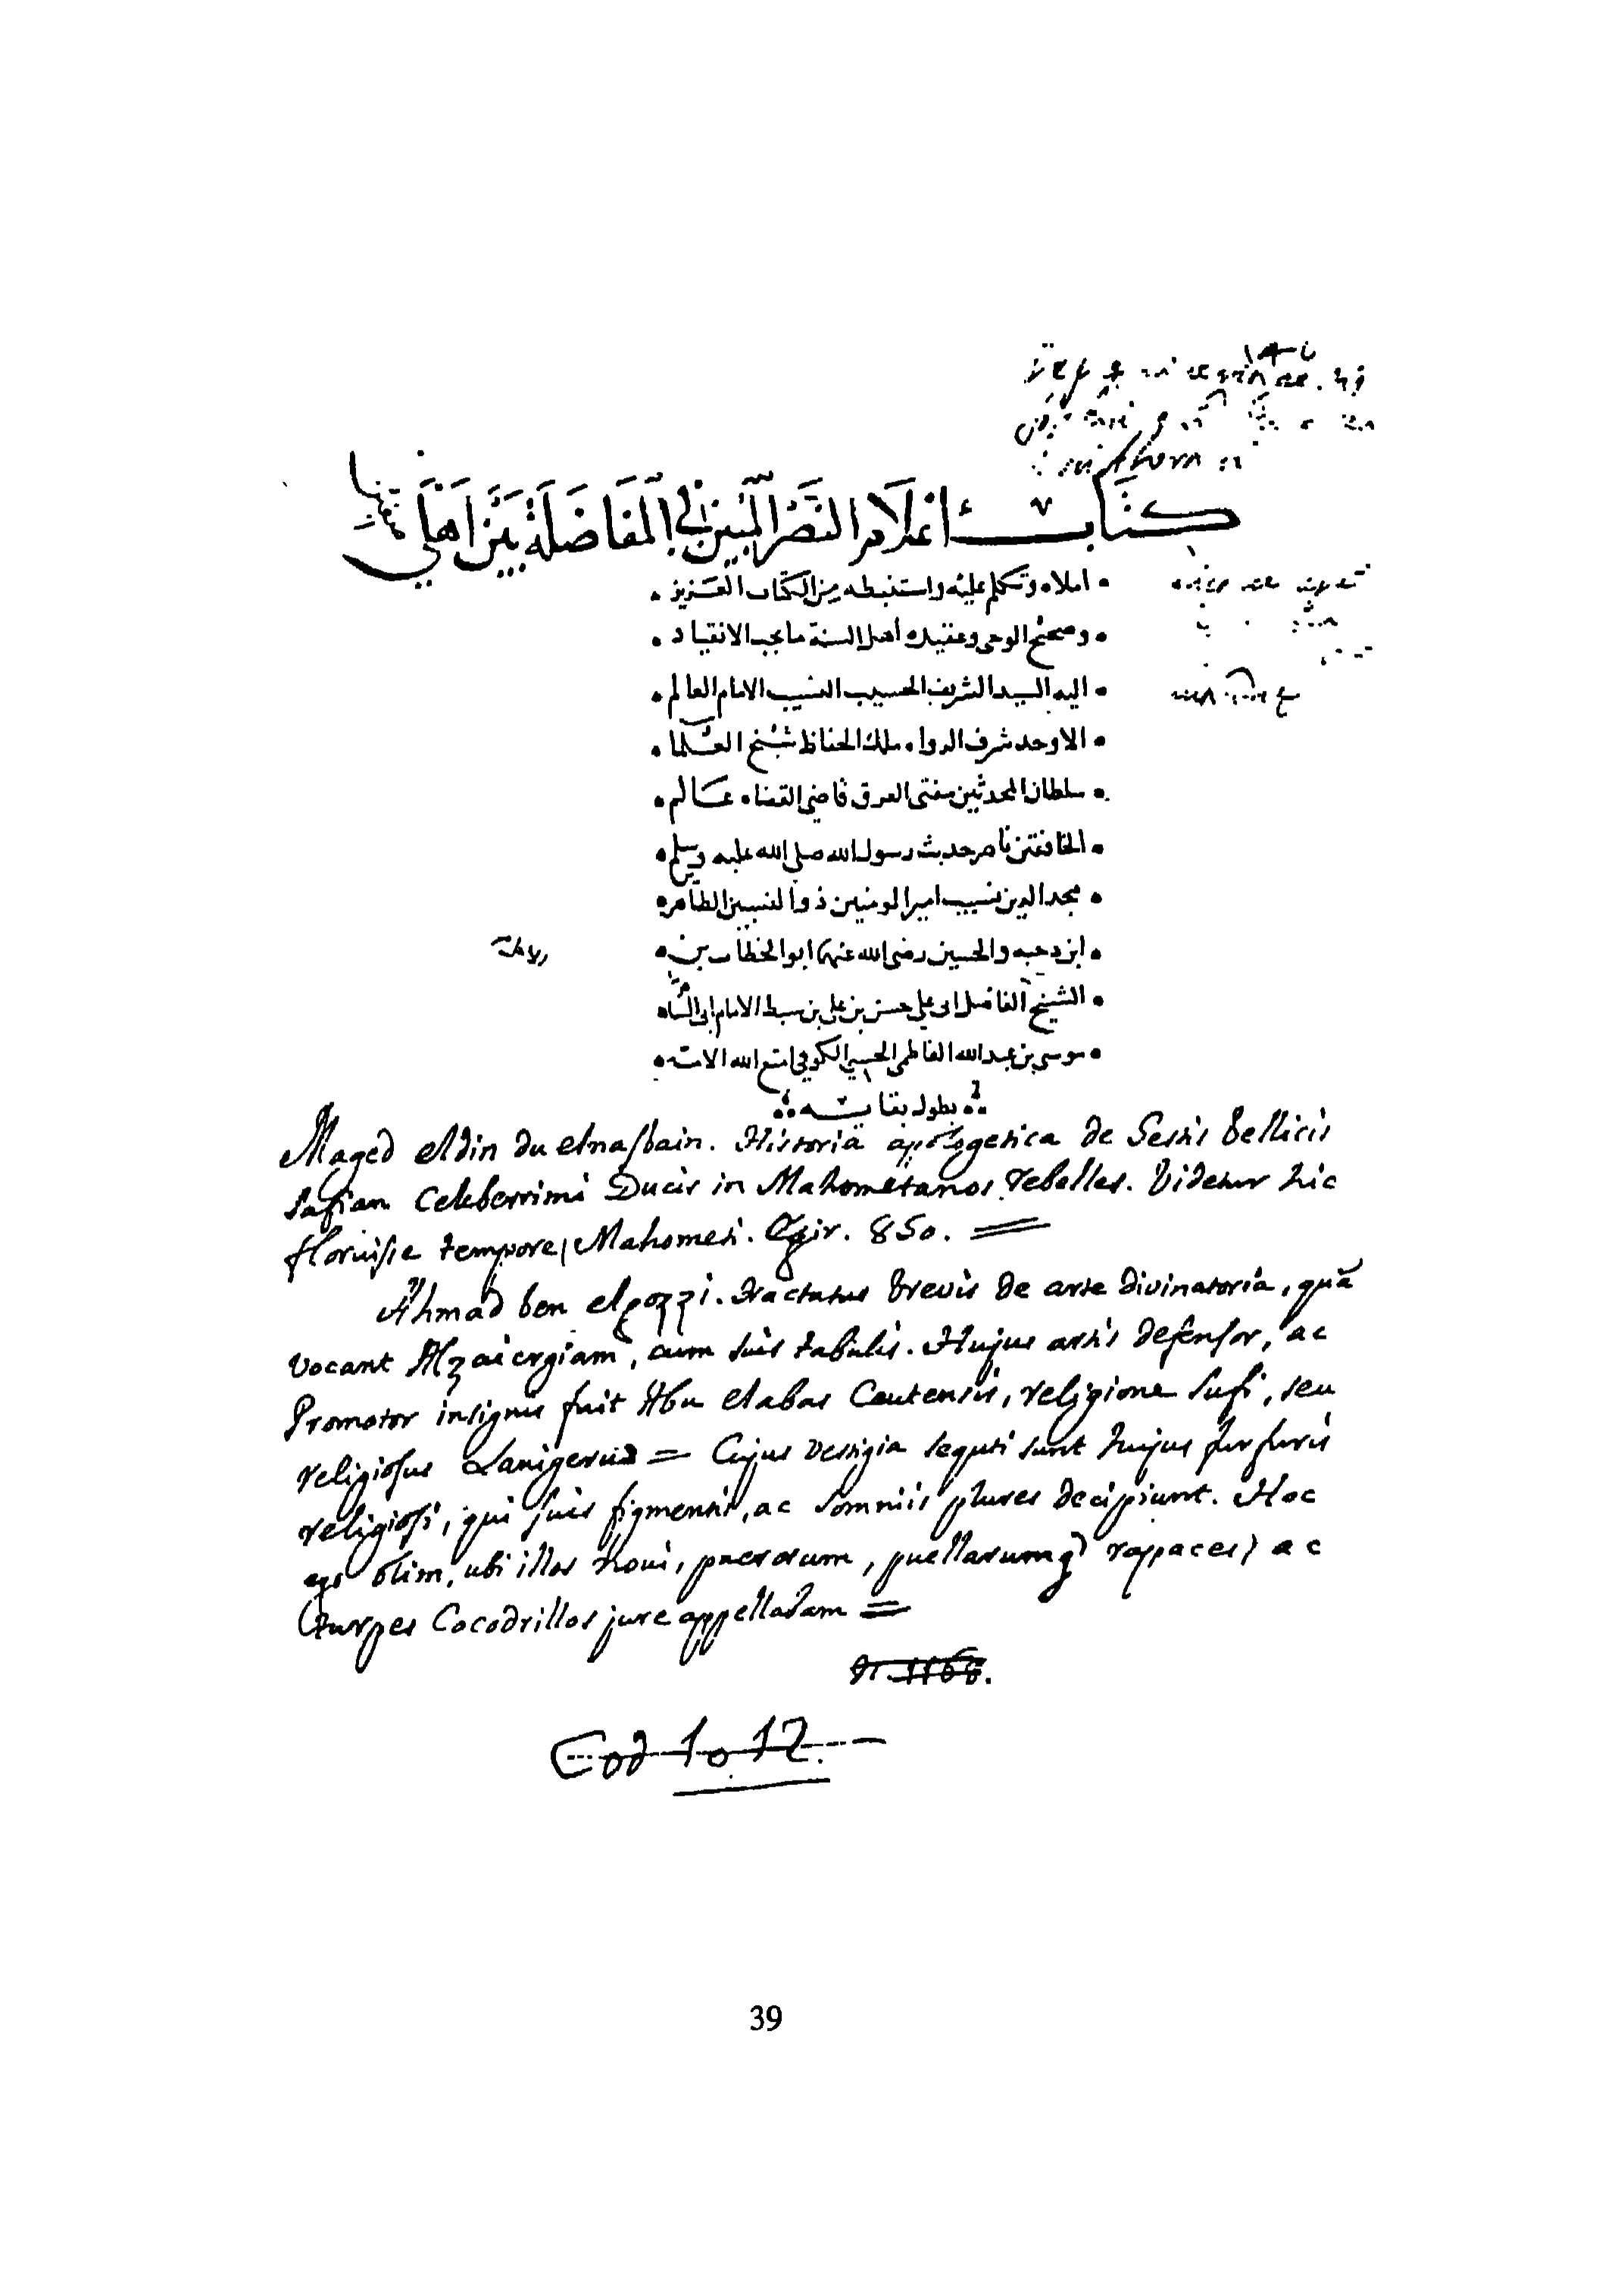 كتاب اعلام النصر المبين في المفاضلة بين اهلي صفين
املاه وتكلم عليه واستنبطه من الكتاب العزيز
وصحيح الوحي وعقيدة أهل السنة ما يجب الانقياد
اليه السيد الشريف الحسيب النسيب الامام العالم
الاوحد شرف الرواه ملك الحفاظ شيخ العلما
سلطان المحدثين مفتى الفرق قاضي القضاه عالم
الخافقين ناصر حديث رسول الله صلى الله عليه وسلم
مجد الدين نسيب امير المومنين ذو النسبين الطاهره
ابن دحيه والحسين رضى الله عنهما ابو الخطاب بن
الشيخ الفاضل ابى علي حسن بن علي بن سبط الامام ابى السام
موسى بن عبد الله الفاطمى الحسيني الكوفي امتع الله الامته
بطول بقايه
Maged eldin du elnasbain. Historia apologetica de Gestis bellicis
Safian Celeberrimi Ducis in Mahometanos rebelles. Videtur hic
floruisse tempore Mahometi. Egir. 850. =
Ahmad ben elgozzi. Tractatus brevis de arte divinatoria, quã
vocant Alzaiergiam, cum suis tabulis. Hujus artis defensor, ac
Promotor insignis fuit Abu elabas Ceutensis, religione Sufi, seu
religiosus Lanigerus = Cujus vestigia sequti sunt hujus furfuris
religiosi, qui suis figmentis, ac somniis plures decipiunt. Hoc
ego olim, ubi illos novi, puerorum, puellarumq rapaces, ac
turpes Cocodrillos jure appellabam =
n. 1168.
Cod 1o 12.
39